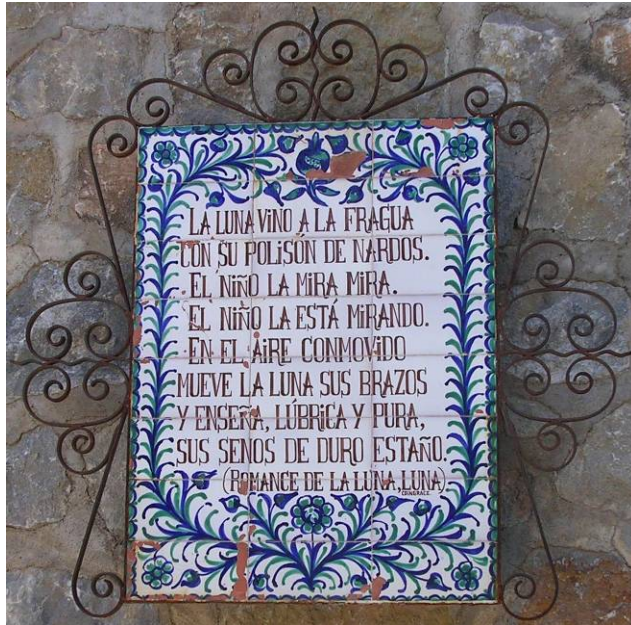 LA LUNA VINO A LA FRAGUA
CON SU POLISÓN DE NARDOS.
EL NIÑO LA MIRA MIRA.
EL NIÑO LA ESTÁ MIRANDO.
EN EL AIRE CONMOVIDO
MUEVE LA LUNA SUS BRAZOS
Y ENSEÑA, LÚBRICA Y PURA,
SUS SENOS DE DURO ESTAÑO.
(ROMANCE DE LA LUNA, LUNA)